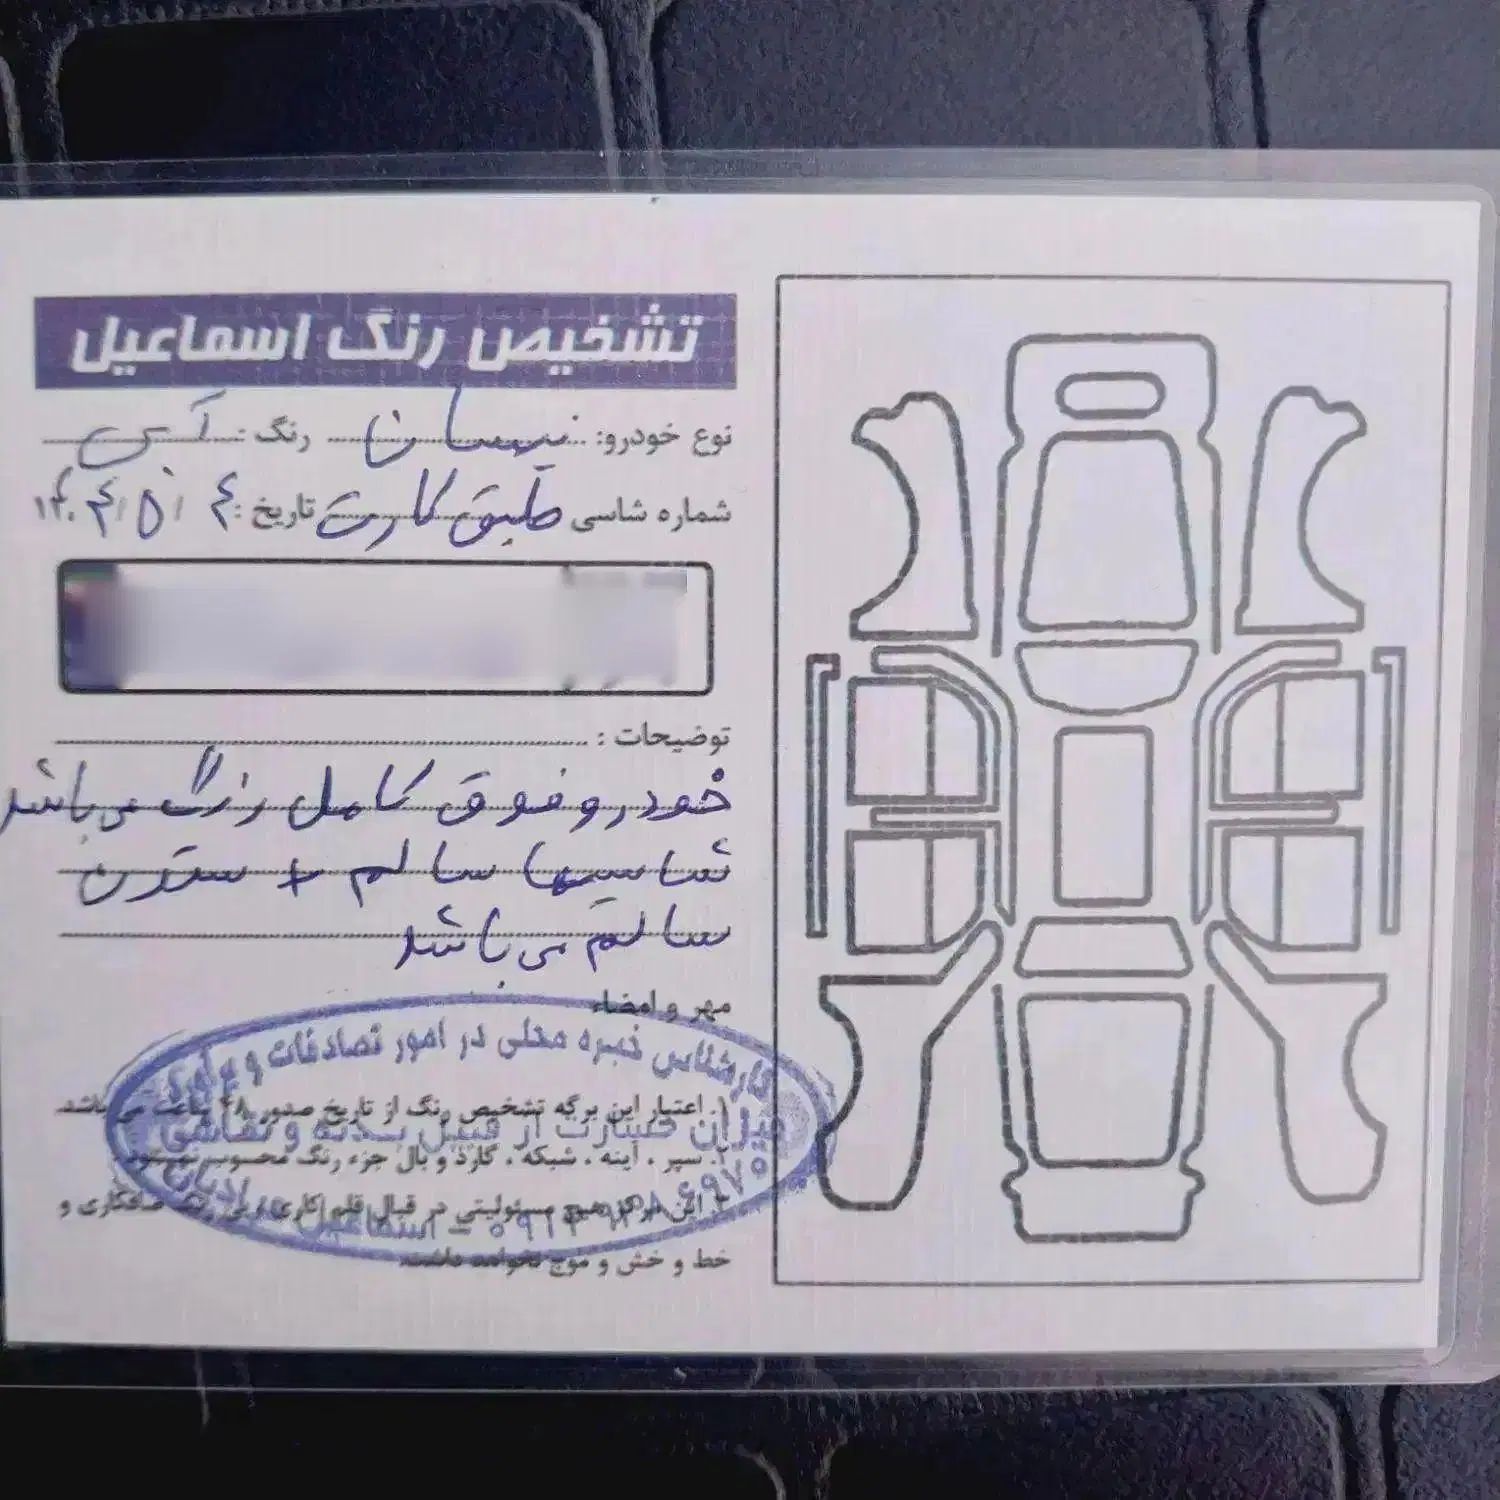 تشخیص رنگ اسماعیل
نوع خودرو: نیسان رنگ: آبی
شماره شاسی طبق کارت تاریخ: ۱۴۰۴/۵/۴
توضیحات:
خودرو فوق کامل رنگ می باشد
شاسیها سالم + ستون
سالم می باشد
مهر و امضاء
کارشناس خبره محلی در امور تصادفات و برآورد
میزان خسارت از قبیل بدنه و نقاشی
۱. اعتبار این برگه تشخیص رنگ از تاریخ صدور ۴۸ ساعت می باشد.
۲. سپر ، آینه ، شبکه ، گارد و بال جزء رنگ محسوب نمیشود
۳. این مرکز هیچ مسئولیتی در قبال قلم کاری، لیزری رنگ، صافکاری و
خط و خش و موج نخواهد داشت.